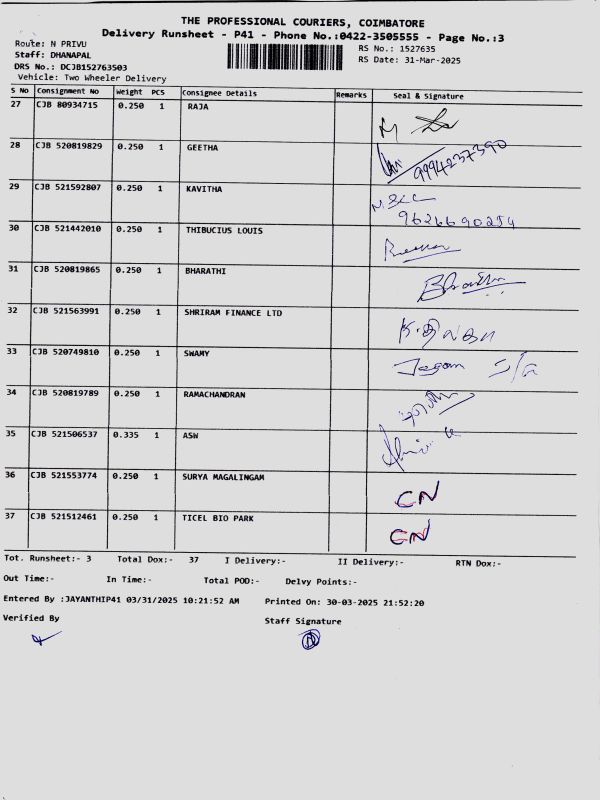 THE PROFESSIONAL COURIERS, COIMBATORE
Delivery Runsheet - P41 - Phone No.:0422-3505555 - Page No.:3
Route: N PRIVU
RS No.: 1527635
Staff: DHANAPAL
RS Date: 31-Mar-2025
DRS No.: DCJB152763503
Vehicle: Two Wheeler Delivery
S No Consignment No Weight PCS Consignee Details Remarks Seal & Signature
27 CJB 80934715 0.250 1 RAJA
28 CJB 520819829 0.250 1 GEETHA 9994237390
29 CJB 521592807 0.250 1 KAVITHA
9626690254
30 CJB 521442010 0.250 1 THIBUCIUS LOUIS
31 CJB 520819865 0.250 1 BHARATHI
32 CJB 521563991 0.250 1 SHRIRAM FINANCE LTD
33 CJB 520749810 0.250 1 SWAMY Jegan S/G
34 CJB 520819789 0.250 1 RAMACHANDRAN
35 CJB 521506537 0.335 1 ASW
36 CJB 521553774 0.250 1 SURYA MAGALINGAM CN
37 CJB 521512461 0.250 1 TICEL BIO PARK CN
Tot. Runsheet:- 3 Total Dox:- 37 I Delivery:- II Delivery:- RTN Dox:-
Out Time:- In Time:- Total POD:- Delvy Points:-
Entered By :JAYANTHIP41 03/31/2025 10:21:52 AM Printed On: 30-03-2025 21:52:20
Verified By Staff Signature